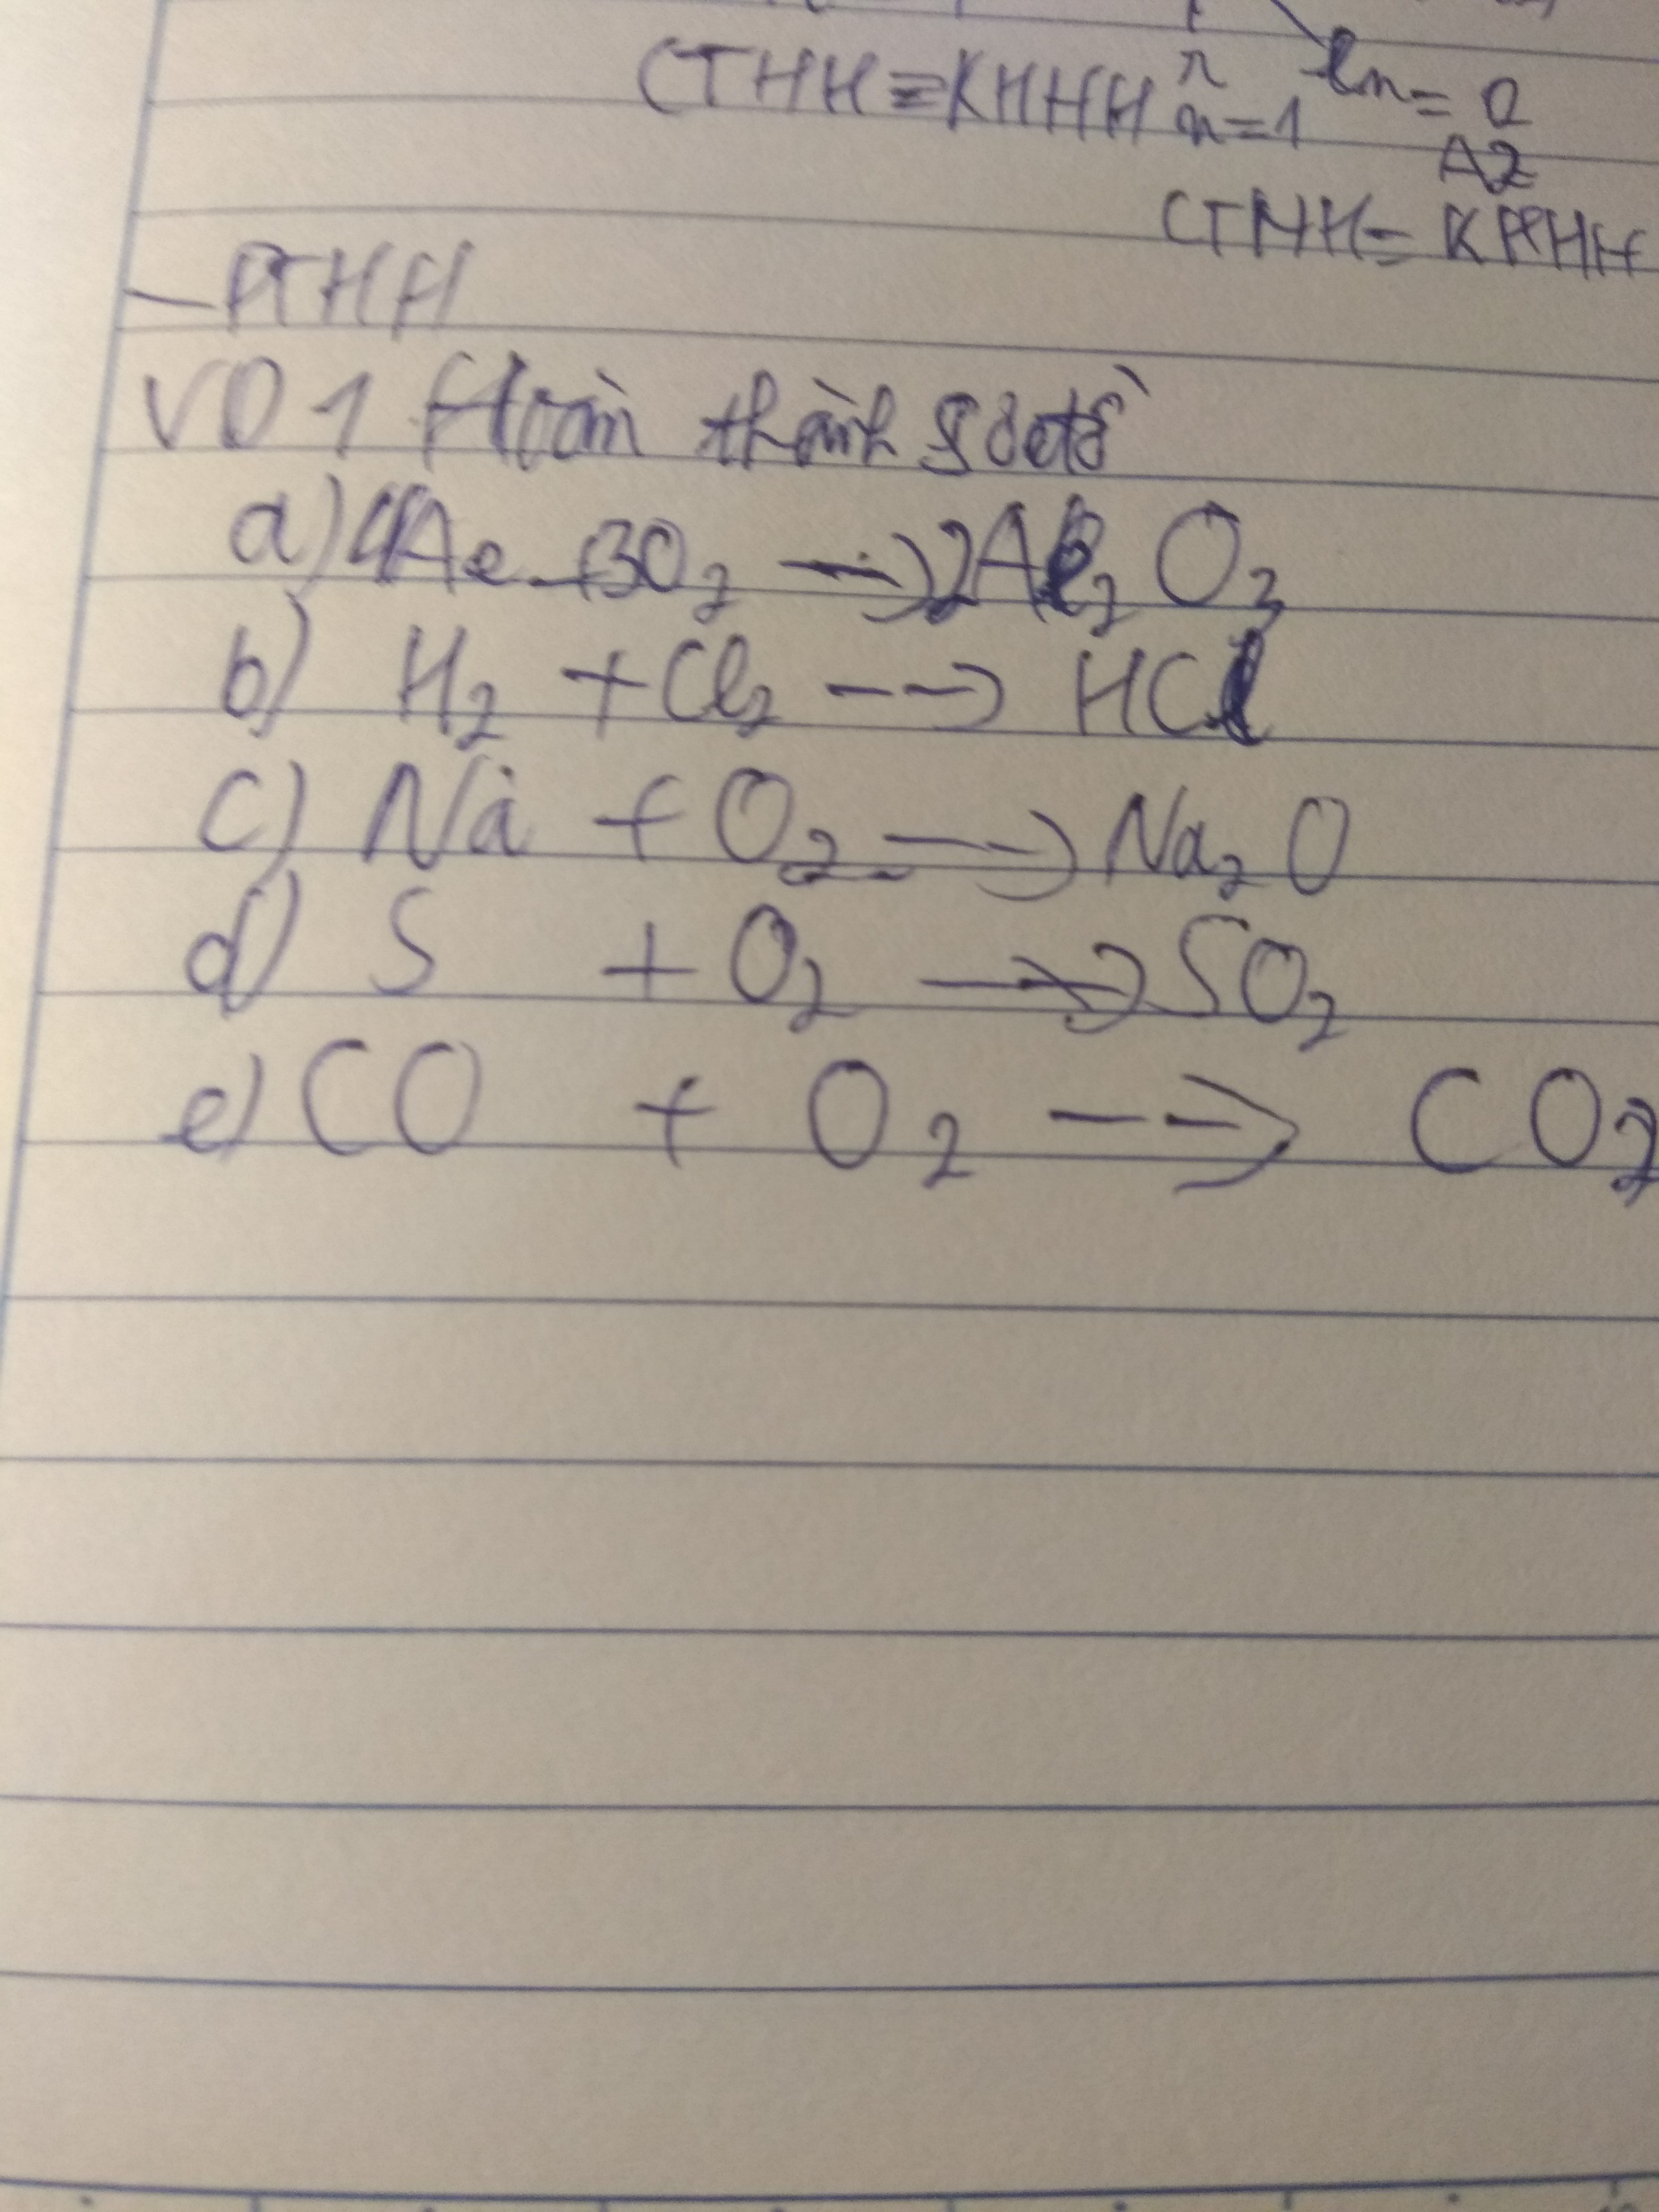 CTHH = KHHH n = 1 n = 2
A2
CTHH = KHHH
- PTHH
VD1 Hoàn thành sơ đồ
a) 4Al + 3O2 --> 2Al2O3
b) H2 + Cl2 --> HCl
c) Na + O2 --> Na2O
d) S + O2 --> SO2
e) CO + O2 --> CO2